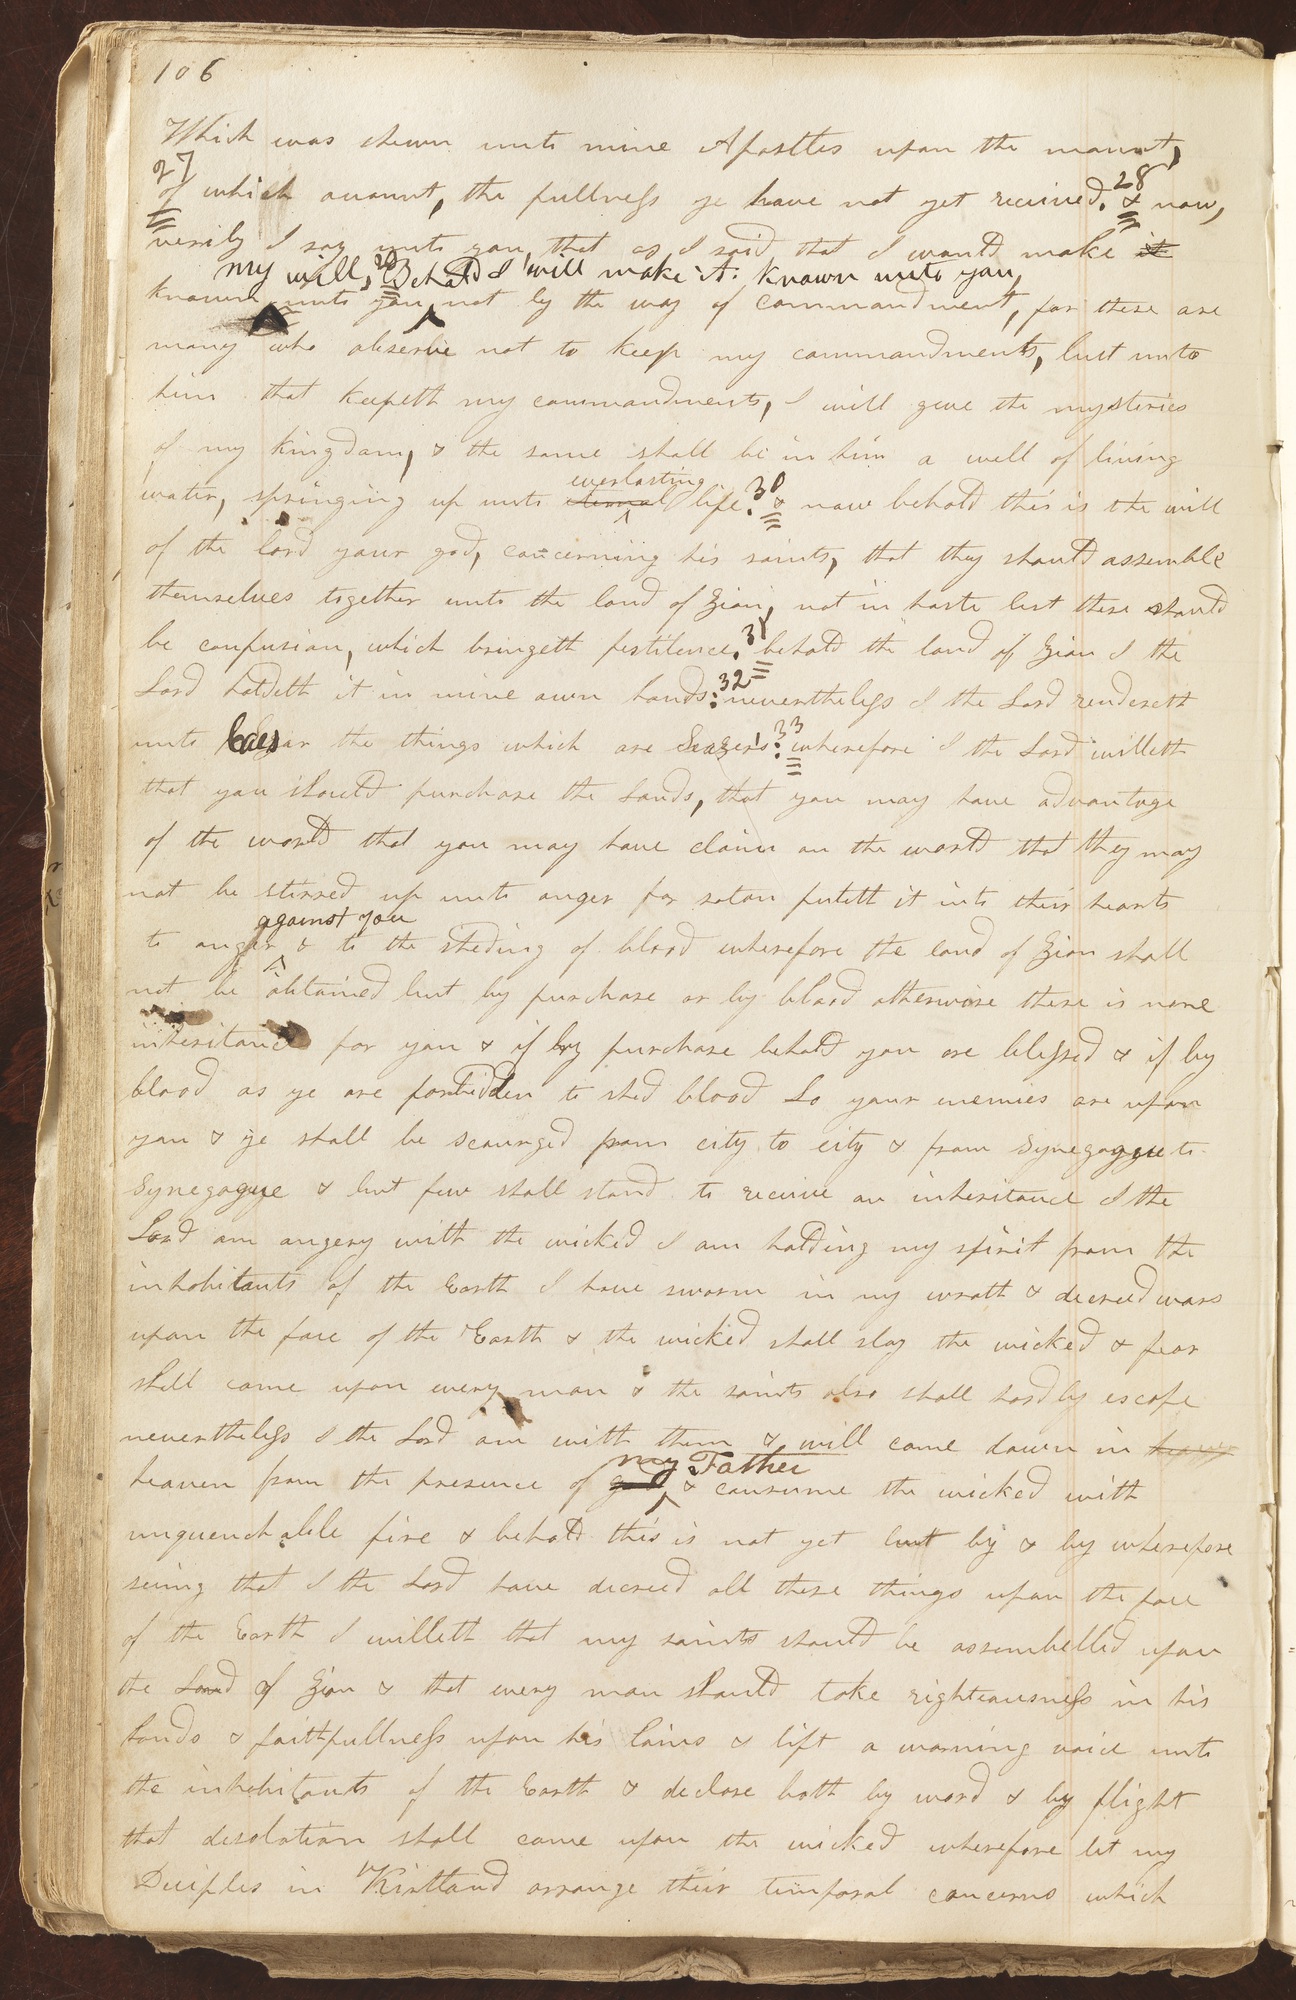 106
Which was shewn unto mine Apostles upon the mount,
27 of which account, the fullness ye have not yet received. 28 & now,
verily I say unto you that as I said that I would make it
my will, 29 Behold I will make it known unto you,
known unto you not by the way of commandment, for there are
many who observe not to keep my commandments, but unto
him that keepeth my commandments, I will give the mysteries
of my kingdom, & the same shall be in him a well of living
everlasting
water, springing up unto eternal life. 30 & now behold this is the will
of the lord your god, concerning his saints, that they should assemble
themselves together unto the land of Zion, not in haste lest there should
be confusion, which bringeth pestilence. 31 behold the land of Zion I the
Lord holdeth it in mine own hands: 32 nevertheless I the Lord rendereth
unto Caesar the things which are Seazers: 33 wherefore I the Lord willeth
that you should purchase the Lands, that you may have advantage
of the world that you may have claim on the world that they may
not be stirred up unto anger for satan puteth it into their hearts
against you
to anger & to the sheding of blood wherefore the land of Zion shall
not be obtained but by purchase or by blood otherwise there is none
inheritance for you & if by purchase behold you are blessed & if by
blood as ye are forbidden to shed blood Lo your enemies are upon
you & ye shall be scourged from city to city & from Synegogue to
Synegogue & but few shall stand to receive an inheritance I the
Lord am angery with the wicked I am holding my spirit from the
inhabitants of the Earth I have sworn in my wrath & decreed wars
upon the face of the Earth & the wicked shall slay the wicked & fear
shall come upon every man & the saints also shall hardly escape
nevertheless I the Lord am with them & will come down in
my Father
heaven from the presence of god & consume the wicked with
unquenchable fire & behold this is not yet but by & by wherefore
seeing that I the Lord have decreed all these things upon the face
of the Earth I willeth that my saints should be assembelled upon
the Land of Zion & that every man should take righteousness in his
hands & faithfullness upon his loins & lift a warning voice unto
the inhabitants of the Earth & declare both by word & by flight
that desolation shall come upon the wicked wherefore let my
Deciples in Kirtland arrange their temporal concerns which